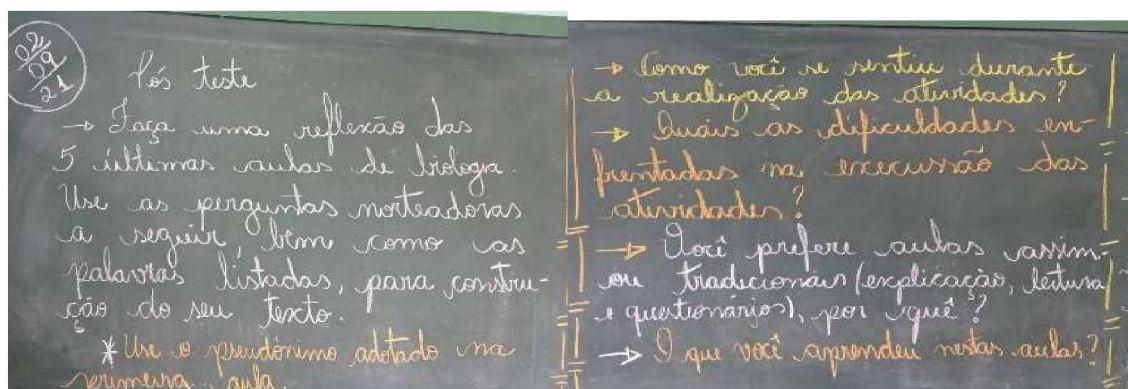 02
09
21
Pós teste
→ Faça uma reflexão das
5 últimas aulas de biologia.
Use as perguntas norteadoras
a seguir, bem como as
palavras listadas, para constru-
ção do seu texto.
* Use o pseudônimo adotado na
primeira aula.
→ Como você se sentiu durante
a realização das atividades?
→ Quais as dificuldades en-
frentadas na execussão das
atividades?
→ Você prefere aulas assim
ou tradicionais (explicação, leitura
e questionários), por quê?
→ O que você aprendeu nestas aulas?